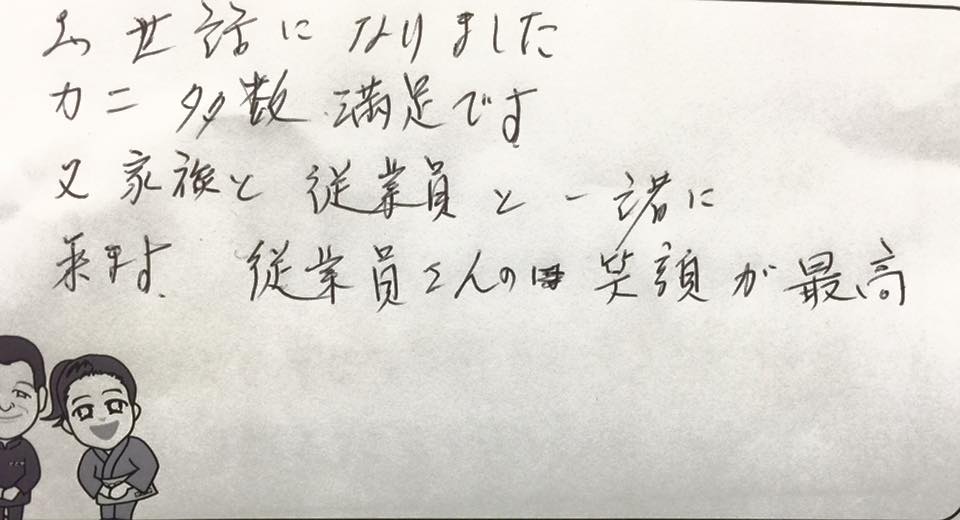 お世話になりました
カニ 多数 満足です
又 家族と 従業員と一諸に
来ます. 従業員さんの 笑顔が最高